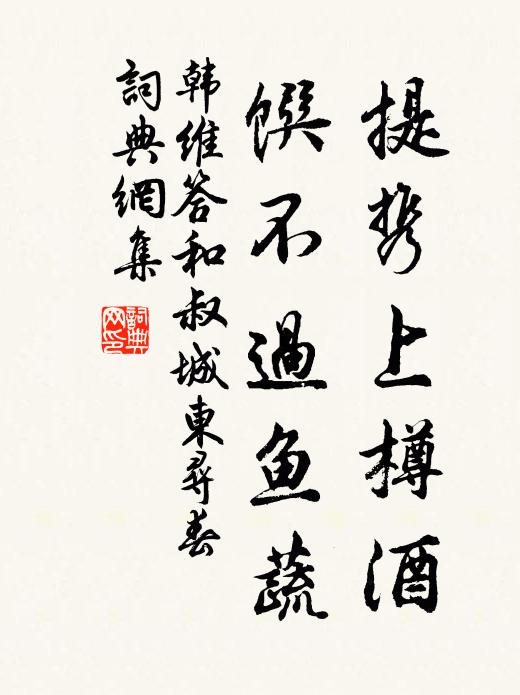 提携上樽酒
馔不過鱼蔬
韩維答和叔城東尋春
詞典網集
詞典网印